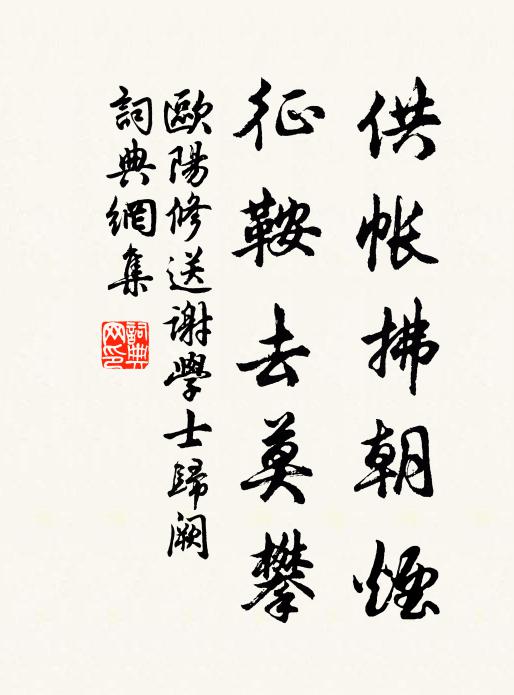 供帳拂朝煙
征鞍去莫攀
歐陽修送謝學士歸闕
詞典網集
詞典網印